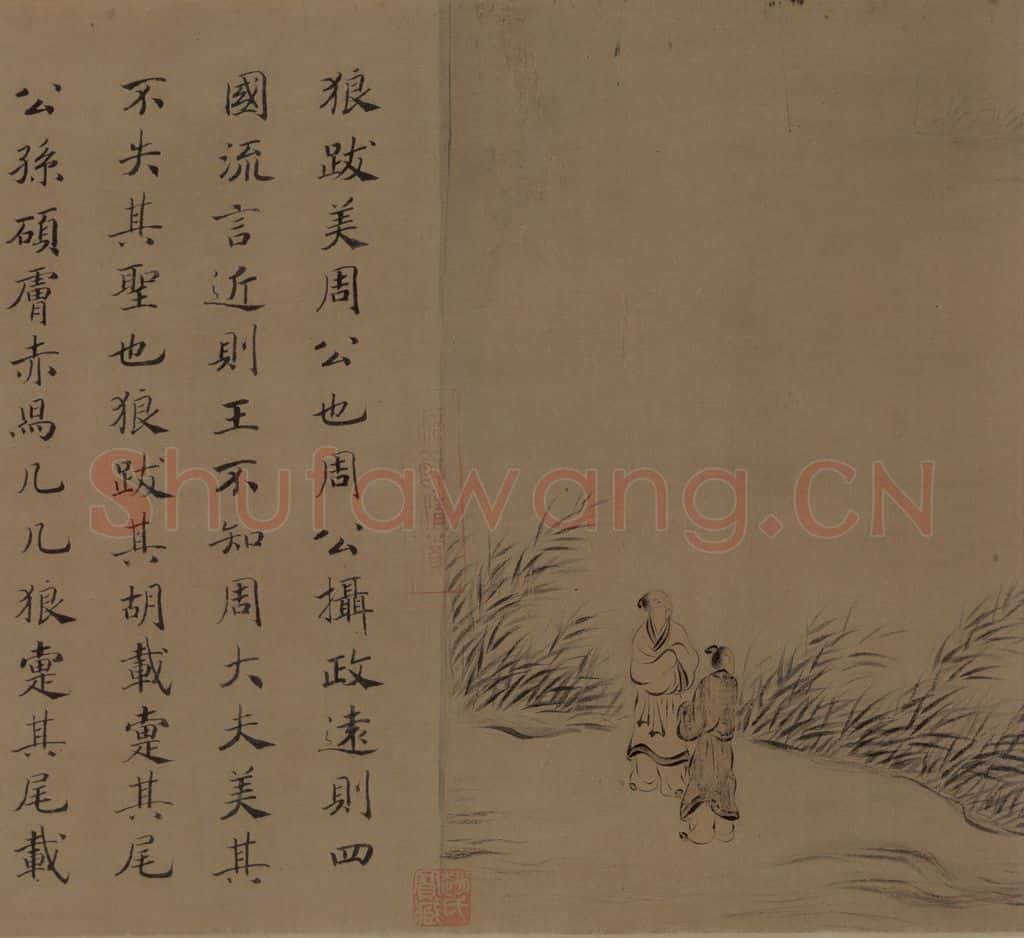 狼跋美周公也周公攝政遠則四
國流言近則王不知周大夫美其
不失其聖也狼跋其胡載疐其尾
公孫碩膚赤舄几几狼疐其尾載
Shufawang.CN